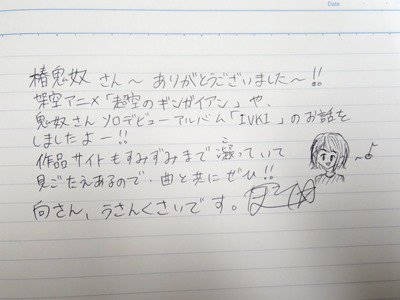 Date
椿鬼奴さん〜ありがとうございました〜!!
架空アニメ「超空のギンガイアン」や、
鬼奴さんソロデビューアルバム「IVKI」のお話を
しましたよー!!
作品サイトもすみずみまで凝っていて
見ごたえあるので・曲と共にぜひ!!
向さん、うさんくさいです。